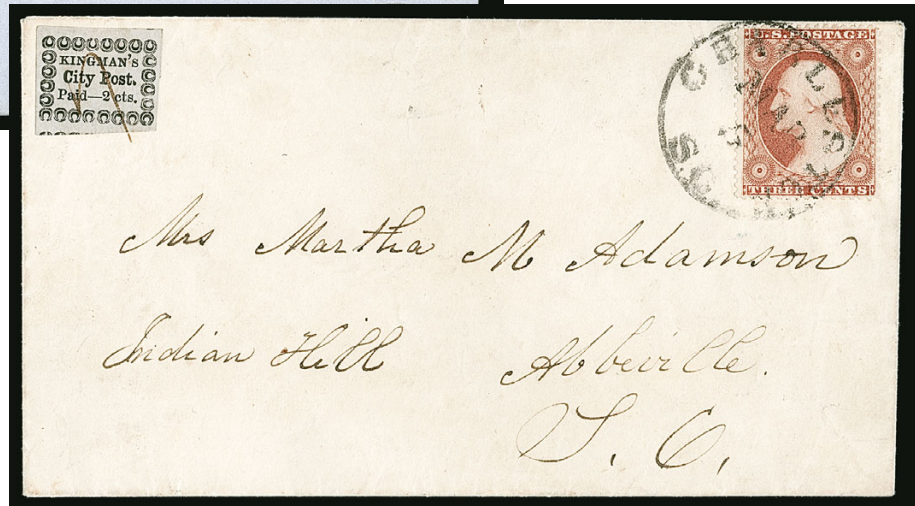 KINGMAN'S
City Post.
Paid—2 cts.
U.S. POSTAGE
THREE CENTS
S.C.
Mrs Martha M Adamson
Indian Hill Abbeville.
S. C.